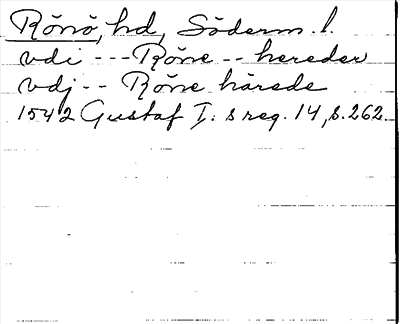 Rönö, hd, Söderm. l.
vdi --- Röne -- hereder
vdj -- Röne härede
1542 Gustaf I:s reg. 14, s. 262.